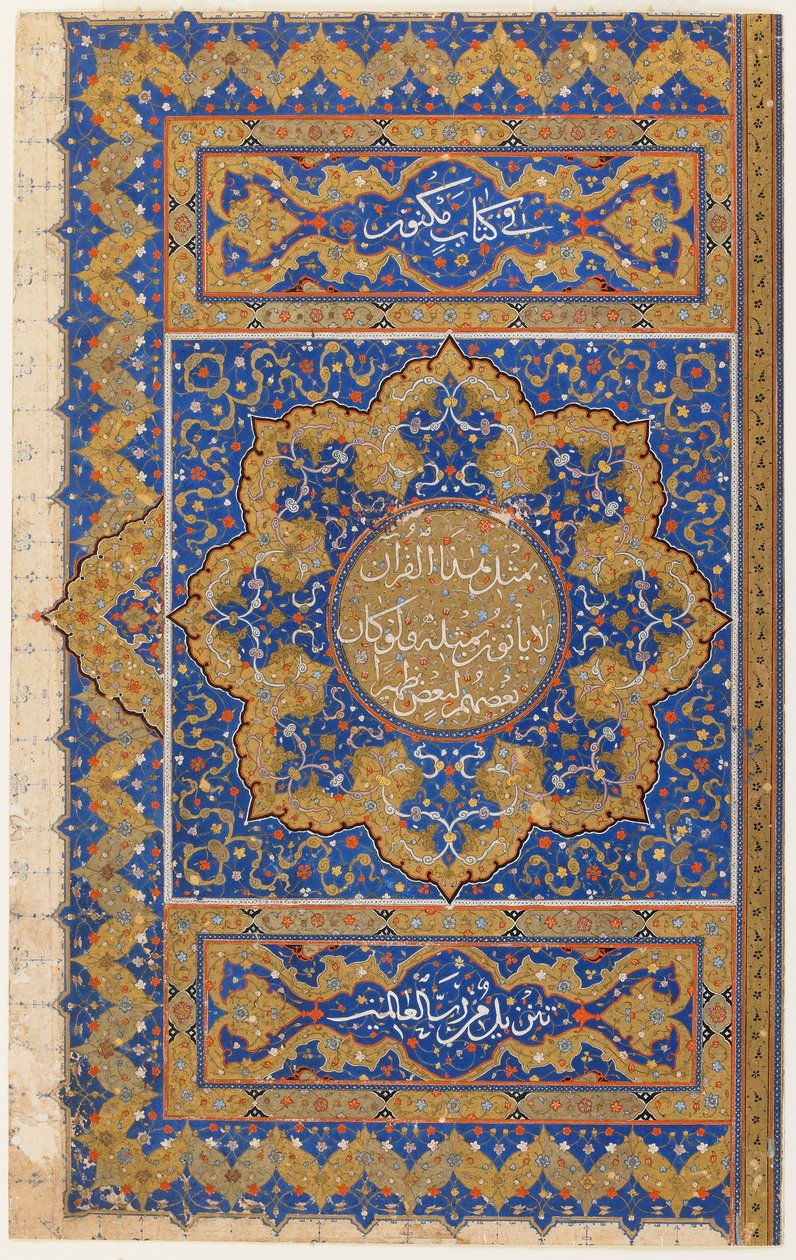 فِي كِتَابٍ مَكْنُونٍ
بِمِثْلِ هَذَا الْقُرْآنِ
لَا يَأْتُونَ بِمِثْلِهِ وَلَوْ كَانَ
بَعْضُهُمْ لِبَعْضٍ ظَهِيرًا
تَنْزِيلٌ مِنْ رَبِّ الْعَالَمِينَ